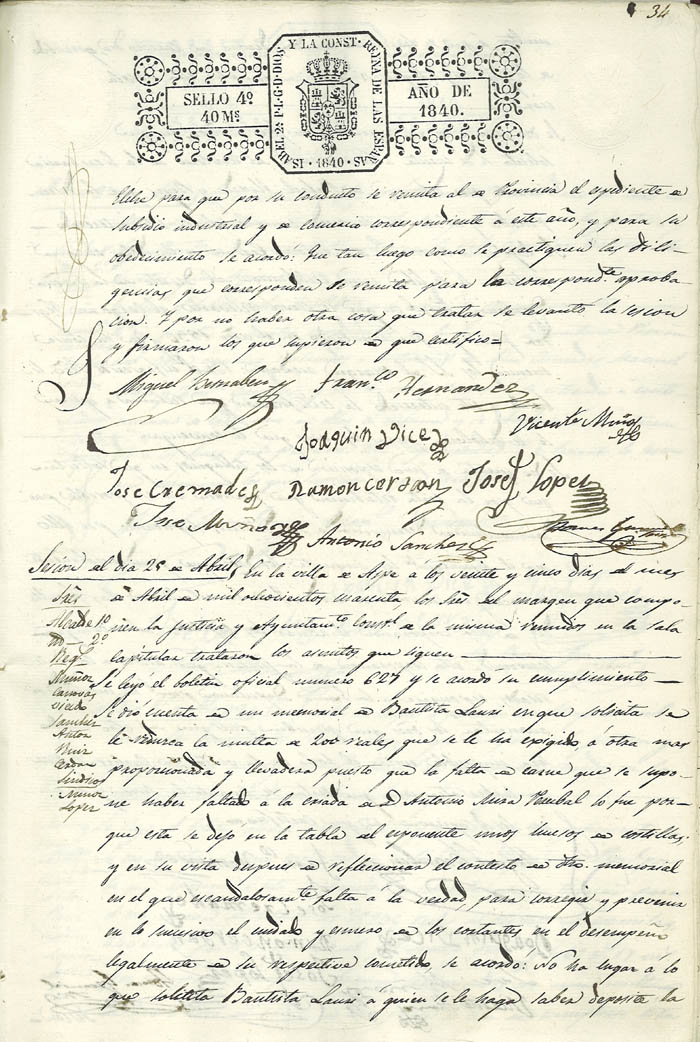 34
ISABEL 2ª P.L.G.D.DIOS Y LA CONST. REINA DE LAS ESPAÑAS
SELLO 4º
40 Ms
AÑO DE
1840.
1840
Elche para que por su conducto se remita al de Provincia el espediente de
subsidio industrial y de comercio correspondiente á este año, y para su
obedecimiento se acordó: Que tan luego como se practiquen las dili-
gencias que corresponden se remita para la correspondte aproba-
cion. Y por no haber otra cosa que tratar se levantó la sesion
y firmaron los que supieron de que certifico=
Miguel Bernabeu Franco Hernandez
Vicente Muñoz
Joaquin Vicedo
Jose Cremades Ramon cerdan Josef Lopez
Jose Muñoz
Antonio Sanchez
Sesion del dia 25 de Abril, En la villa de Aspe á los veinte y cinco dias del mes
de Abril de mil ochocientos cuarenta los Sres del margen que compo-
nen la Justicia y Ayuntamto Constl de la misma reunidos en la sala
capitular trataron los asuntos que siguen
Sres
Alcalde 1º
Ydo — 2º
Regs
Muñoz
Canovas
Vicedo
Sanchez
Anton
Ruiz
Cerdan
Sindicos
Muñoz
Lopez
Se leyó el boletin oficial numero 627 y se acordó su cumplimiento
Se dió cuenta de un memorial de Bautista Lauri en que solicita se
le reduzca la multa de 200 reales que se le ha exigido á otra mas
proporcionada y llevadera puesto que la falta de carne que se supo-
ne haber faltado á la criada de D Antonio Mira Percebal lo fue por-
que esta se dejó en la tabla del esponente unos huesos de costillas;
y en su vista despues de refleccionar el contesto de dho. memorial
en el que escandalosamte falta á la verdad, para corregir y prevenir
en lo sucesivo el cuidado y esmero de los cortantes en el desempeño
legalmente de su respective cometido, se acordó: No ha lugar á lo
que solicita Bautista Lauri á quien se le haga saber deposite la